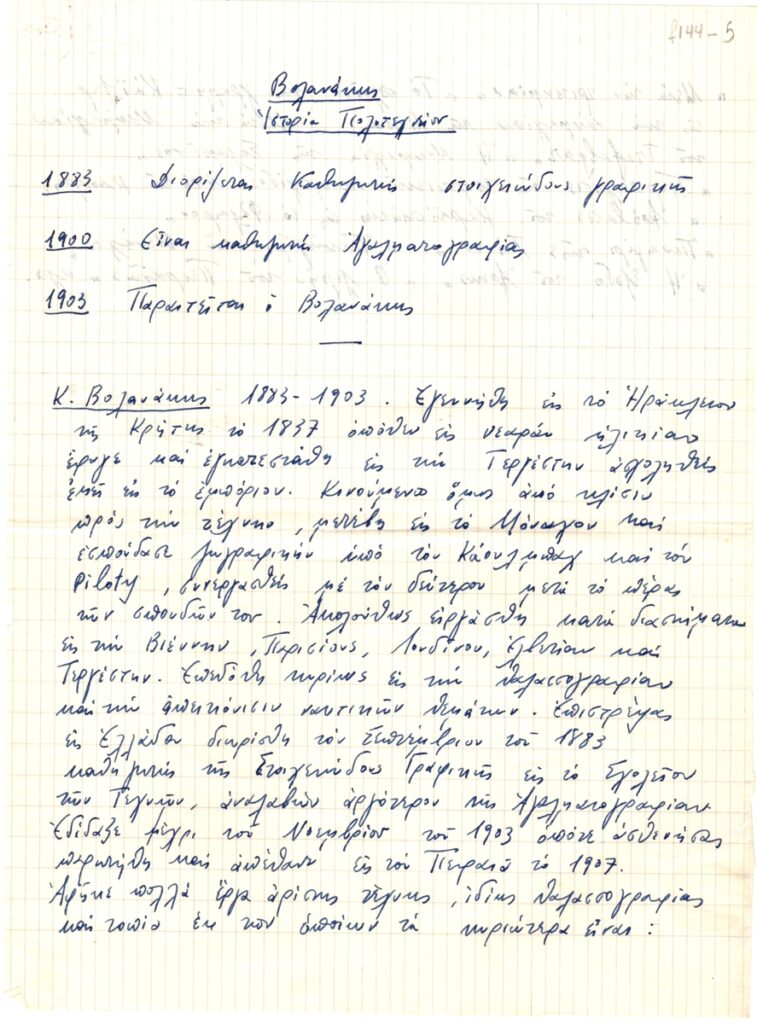 f144-5
Βολανάκης
Ἱστορία Πολυτεχνείου
1883 Διορίζεται Καθηγητής στοιχειώδους γραφικῆς
1900 Εἶναι καθηγητής Ἀγαλματογραφίας
1903 Παραιτεῖται ὁ Βολανάκης
Κ. Βολανάκης 1883-1903. Ἐγεννήθη εἰς τό Ἡράκλειον
τῆς Κρήτης τό 1837 ὁπόθεν εἰς νεαράν ἡλικίαν
ἔφυγε καί ἐγκατεστάθη εἰς τήν Τεργέστην ἀσχοληθείς
ἐκεῖ εἰς τό ἐμπόριον. Κινούμενος ὅμως ἀπό κλίσιν
πρός τήν τέχνην, μετέβη εἰς τό Μόναχον καί
ἐσπούδασε ζωγραφικήν ὑπό τόν Κάουλμπαχ καί τόν
Piloty, συνεργασθείς μέ τόν δεύτερον μετά τό πέρας
τῶν σπουδῶν του. Ἀκολούθως εἰργάσθη κατά διαστήματα
εἰς τήν Βιέννην, Παρισίους, Λονδῖνον, Ἑλβετίαν καί
Τεργέστην. Ἐπεδόθη κυρίως εἰς τήν θαλασσογραφίαν
καί τήν ἀπεικόνισιν ναυτικῶν θεμάτων. Ἐπιστρέψας
εἰς Ἑλλάδα διωρίσθη τόν Σεπτέμβριον τοῦ 1883
καθηγητής τῆς Στοιχειώδους Γραφικῆς εἰς τό Σχολεῖον
τῶν Τεχνῶν, ἀναλαβών ἀργότερον τῆς Ἀγαλματογραφίαν.
Ἐδίδαξε μέχρι τοῦ Νοεμβρίου τοῦ 1903 ὁπότε ἀσθενήσας
παρῃτήθη καί ἀπέθανε εἰς τόν Πειραιᾶ τό 1907.
Ἀφῆκε πολλά ἔργα ἀρίστης τέχνης, ἰδίως θαλασσογραφίας
καί τοπία ἐκ τῶν ὁποίων τά κυριώτερα εἶναι: